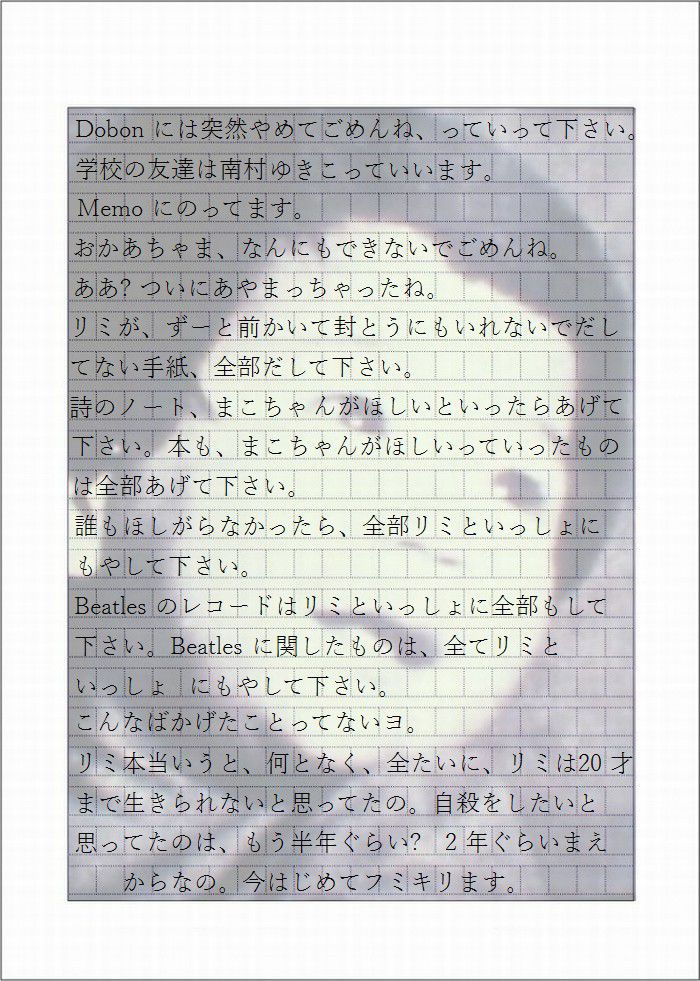 Dobon には突然やめてごめんね、っていって下さい。
学校の友達は南村ゆきこっていいます。
Memo にのってます。
おかあちゃま、なんにもできないでごめんね。
ああ? ついにあやまっちゃったね。
リミが、ずーと前かいて封とうにもいれないでだし
てない手紙、全部だして下さい。
詩のノート、まこちゃんがほしいといったらあげて
下さい。本も、まこちゃんがほしいっていったもの
は全部あげて下さい。
誰もほしがらなかったら、全部リミといっしょに
もやして下さい。
Beatles のレコードはリミといっしょに全部もして
下さい。Beatles に関したものは、全てリミと
いっしょ にもやして下さい。
こんなばかげたことってないヨ。
リミ本当いうと、何となく、全たいに、リミは20 才
まで生きられないと思ってたの。自殺をしたいと
思ってたのは、もう半年ぐらい? 2 年ぐらいまえ
からなの。今はじめてフミキリます。